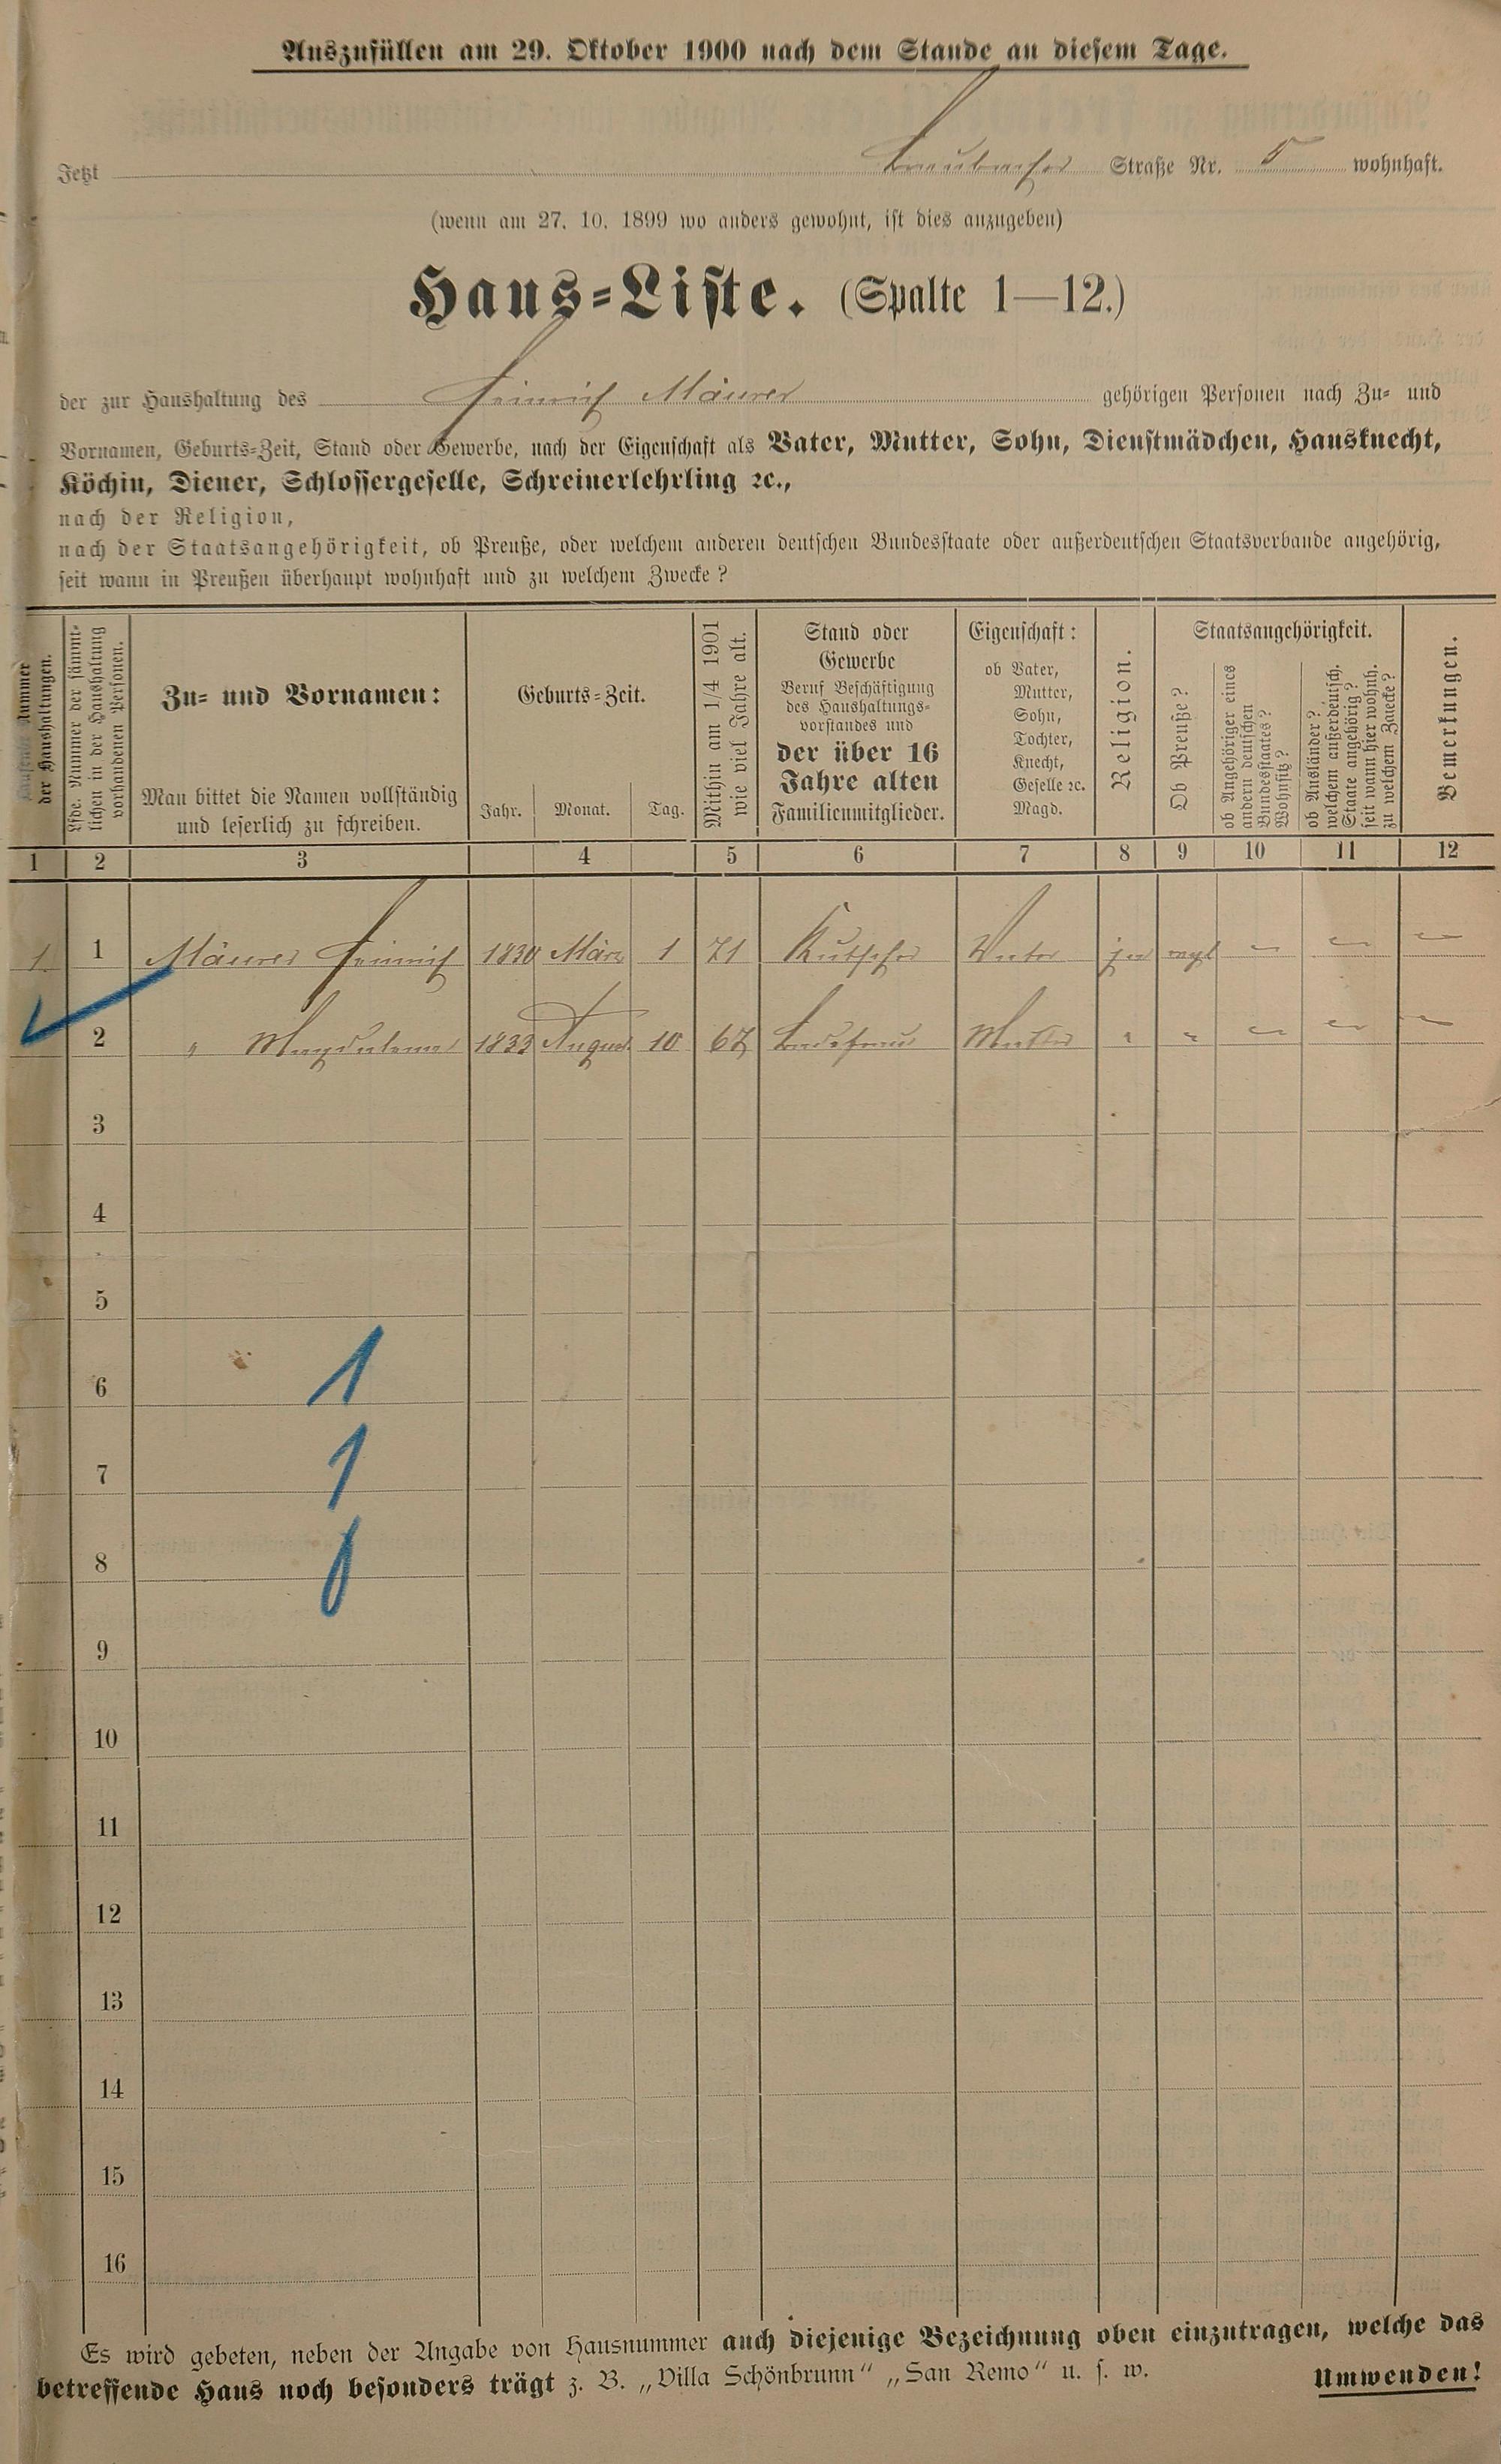 Auszufüllen am 29. Oktober 1900 nach dem Stande an diesem Tage.
Jetzt Braubacher Straße Nr. 5 wohnhaft.
(wenn am 27. 10. 1899 wo anders gewohnt, ist dies anzugeben)
Haus=Liste. (Spalte 1—12.)
der zur Haushaltung des Heinrich Mäurer gehörigen Personen nach Zu= und
Vornamen, Geburts=Zeit, Stand oder Gewerbe, nach der Eigenschaft als Vater, Mutter, Sohn, Dienstmädchen, Hausknecht,
Köchin, Diener, Schlossergeselle, Schreinerlehrling ꝛc.,
nach der Religion,
nach der Staatsangehörigkeit, ob Preuße, oder welchem anderen deutschen Bundesstaate oder außerdeutschen Staatsverbande angehörig,
seit wann in Preußen überhaupt wohnhaft und zu welchem Zwecke?
Laufende Nummer
der Haushaltungen.
Lfde. Nummer der sämmt-
lichen in der Haushaltung
vorhandenen Personen.
Zu= und Vornamen:
Man bittet die Namen vollständig
und leserlich zu schreiben.
Geburts=Zeit.
Jahr. Monat. Tag.
Mithin am 1/4 1901
wie viel Jahre alt.
Stand oder
Gewerbe
Beruf Beschäftigung
des Haushaltungs=
vorstandes und
der über 16
Jahre alten
Familienmitglieder.
Eigenschaft:
ob Vater,
Mutter,
Sohn,
Tochter,
Knecht,
Geselle ꝛc.
Magd.
Religion.
Staatsangehörigkeit.
Ob Preuße?
ob Angehöriger eines
andern deutschen
Bundesstaates?
Wohnsitz?
ob Ausländer?
welchem außerdeutsch.
Staate angehörig?
seit wann hier wohnh.
zu welchem Zwecke?
Bemerkungen.
1 2 3 4 5 6 7 8 9 10 11 12
1 1 Mäurer Heinrich 1830 März 1 71 Kutscher Vater
2 " Magdalena 1833 August 10 67 Mutter " "
3
4
5
6 1
7 1
8
9
10
11
12
13
14
15
16
Es wird gebeten, neben der Angabe von Hausnummer auch diejenige Bezeichnung oben einzutragen, welche das
betreffende Haus noch besonders trägt z. B. „Villa Schönbrunn“ „San Remo“ u. s. w. Umwenden!